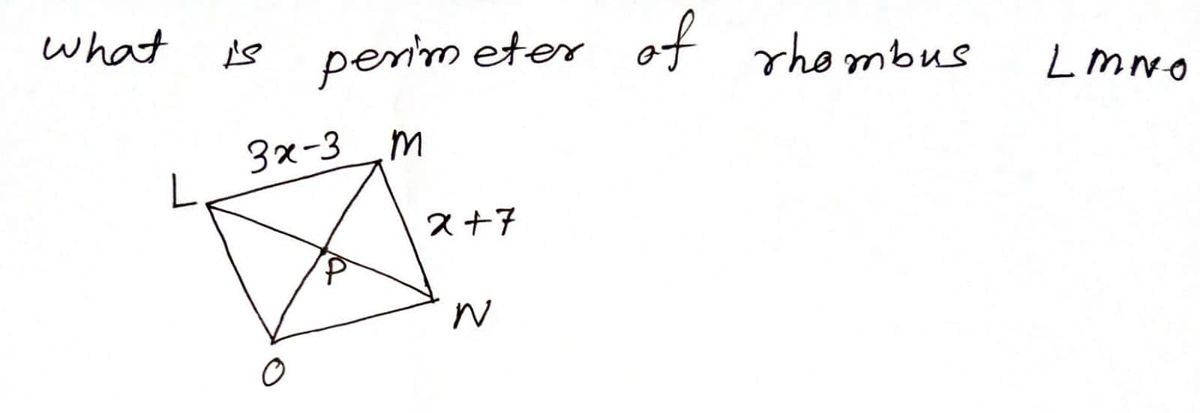 what is perimeter of rhombus LMNO
3x-3 M
L
x+7
P
N
O